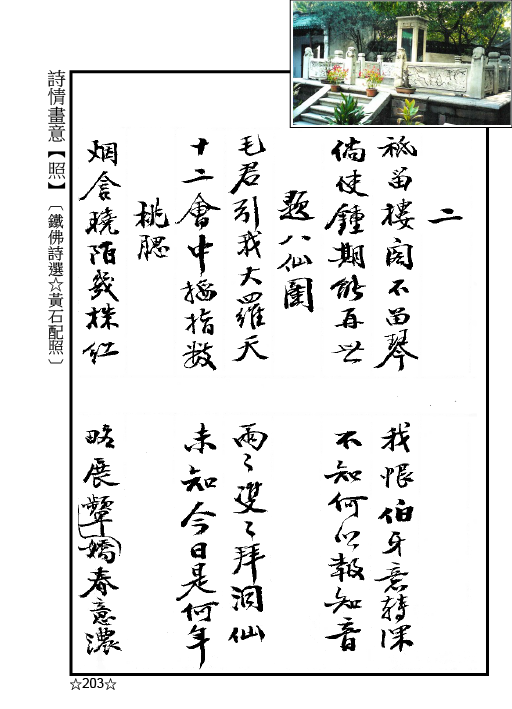 二
祗留樓閣不留琴　我恨伯牙意轉深
倘使鍾期能再世　不知何以報知音
題八仙圖
毛君引我大羅天　兩々雙々拜洞仙
十二會中搯指數　未知今日是何年
桃腮
烟含曉陌幾株紅　略展顰嬌春意濃
詩情畫意【照】〔鐵佛詩選☆黃石配照〕
☆203☆